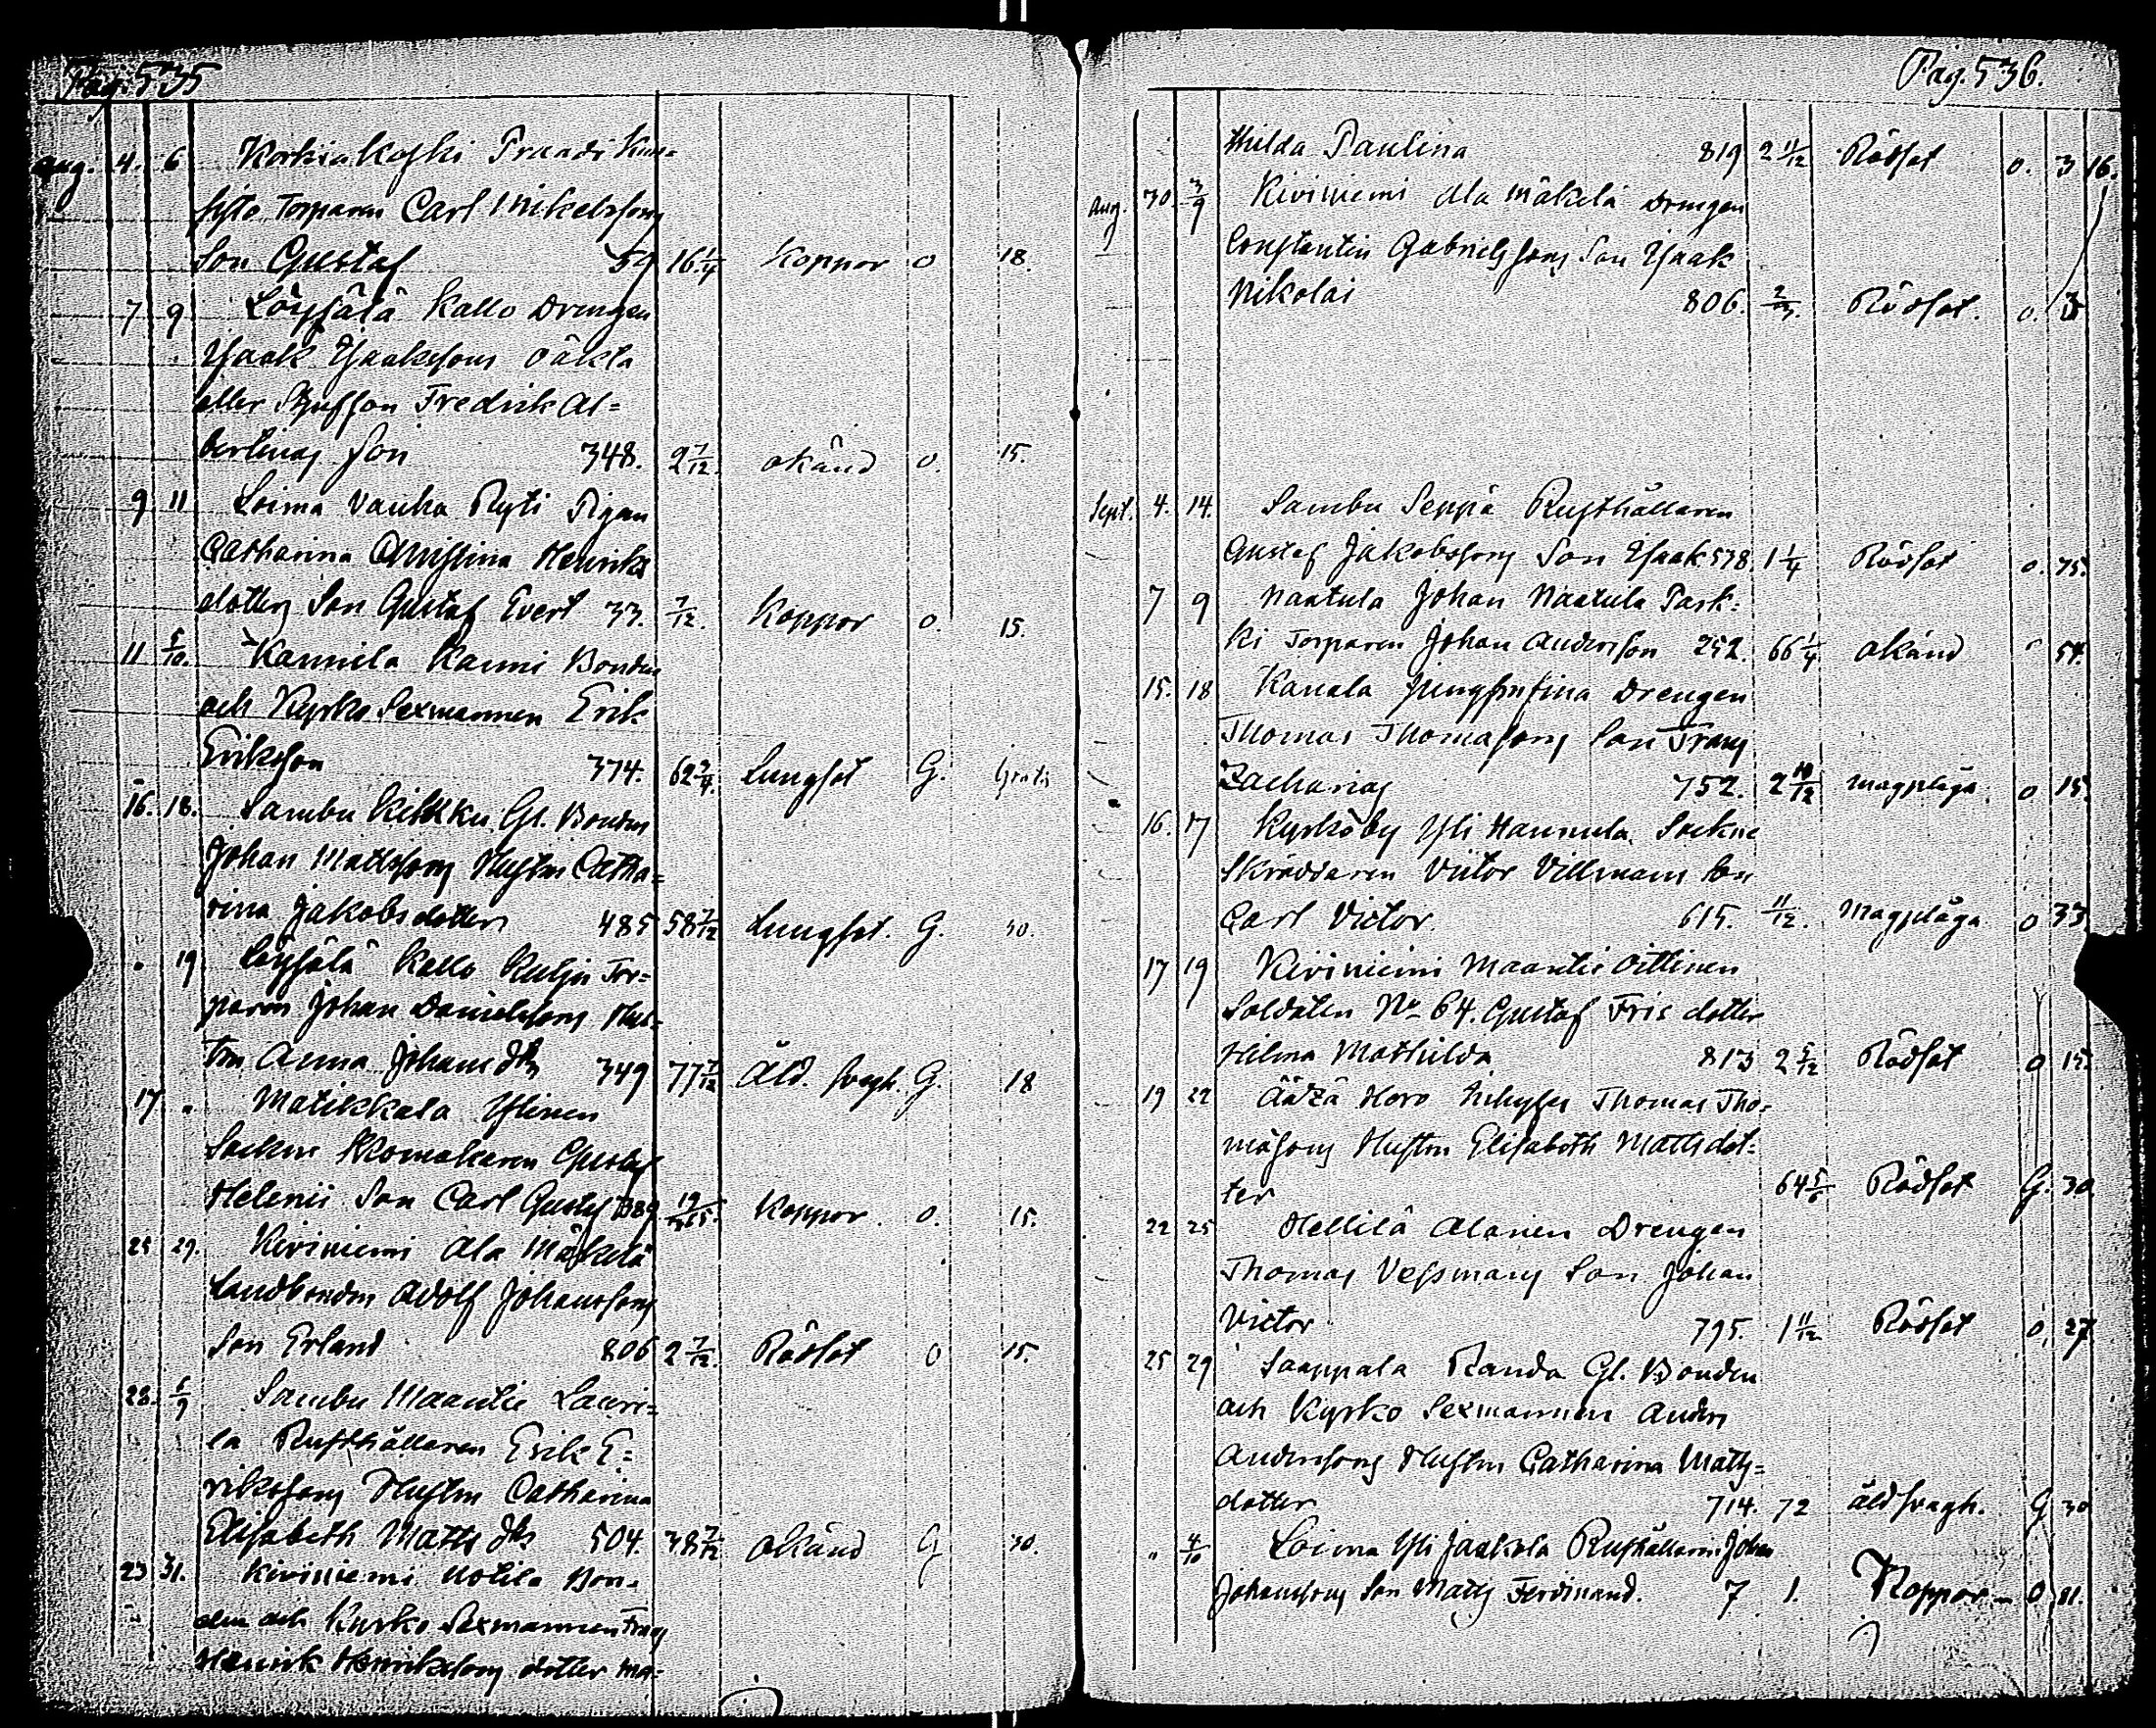 Pag. 535
aug. 4. 6 Korkiakoski Prundi
Torparen Carl Mikelssons
Son Gustaf 59 16 1/4 Koppor o 18.
7 9 Löysälä Kallo Drengen
Isaak Isaakssons oäkta
eller Styfson Fredrik Al=
bertinas Son 348. 2 7/12. okänd o. 15.
9 11 Loima Vanha Ryti Pigan
Catharina Christina Henriks
dotters Son Gustaf Evert 33. 7/12. Koppor o. 15.
11 5/10. Kannila Kanni Bonden
och Kyrko Sexmannen Erik
Eriksson 374. 62 3/4. Lungsot G. Gratis
16. 18. Sambu Kilkku Gl. Bonden
Johan Mattssons Hustru Catha=
rina Jakobsdotter 485 58 7/12 Lungsot. G. 30.
19 Löysälä Kallo Tor=
paren Johan Danielssons Hus=
tru Anna Johans dtr 349 77 7/12 Åld. svagh. G. 18
17 " Matikkala Ylinen
Socken Skomakaren Gustaf
Helenii Son Carl Gustaf 389 19/365. Koppor. o. 15.
25 29. Kiviniemi Ala Mäkelä
Landbonden Adolf Johanssons
Son Erland 806 2 7/12. Rödsot o 15.
28. 5/9 Sambu Maantie Lauri=
la Rusthållaren Erik E=
rikssons Hustru Catharina
Elisabeth Matts dtr 504. 38 7/12 okänd G 30.
23 31. Kiviniemi Notila Bon=
den och Kyrko Sexmannen Frans
Henrik Henrikssons dotter Ma=
Pag. 536.
Hilda Paulina 819 2 11/12 Rödsot o. 3 16.
aug. 30 3/9 Kiviniemi Ala Mäkelä Drengen
Constantin Gabrielssons Son Isaak
Nikolai 806. 2/3. Rödsot. o. 3
Sept. 4. 14. Sambu Seppä Rusthållaren
Gustaf Jakobssons Son Isaak 578. 1 1/4 Rödsot o. 75.
7 9 Naatula Johan Naatula Park=
ki Torparen Johan Andersson 252. 66 1/4 okänd 54.
15. 18 Kanala Drengen
Thomas Thomassons Son Frans
Zacharias 752. 2 10/12 magplåga o 15.
16. 17 Kyrkoby Yli Hannula Sockne
Skräddaren Victor Villmans Son
Carl Victor. 615. 11/12. Magplåga o 33.
17 19 Kiviniemi Maantie Oittinen
Soldaten No 64. Gustaf Fris dotter
Hilma Mathilda 813 2 5/12 Rödsot o 15.
19 22 Äätzä Horo Inhyses Thomas Tho=
massons Hustru Elisabeth Matts dot=
ter 64 5/6 Rödsot G. 30
22 25 Hellilä Alanen Drengen
Thomas Vessmans Son Johan
Victor 795. 1 11/12 Rödsot o. 27.
25 29 Saappala Randa Gl. Bonden
och Kyrko Sexmannen Anders
Anderssons Hustru Catharina Matts=
dotter 714. 72 åld svagh. G 30
" 4/10 Loima Yli Jaakola Rusthållaren Johan
Johanssons Son Matts Ferdinand. 7 1. Koppor o 81.